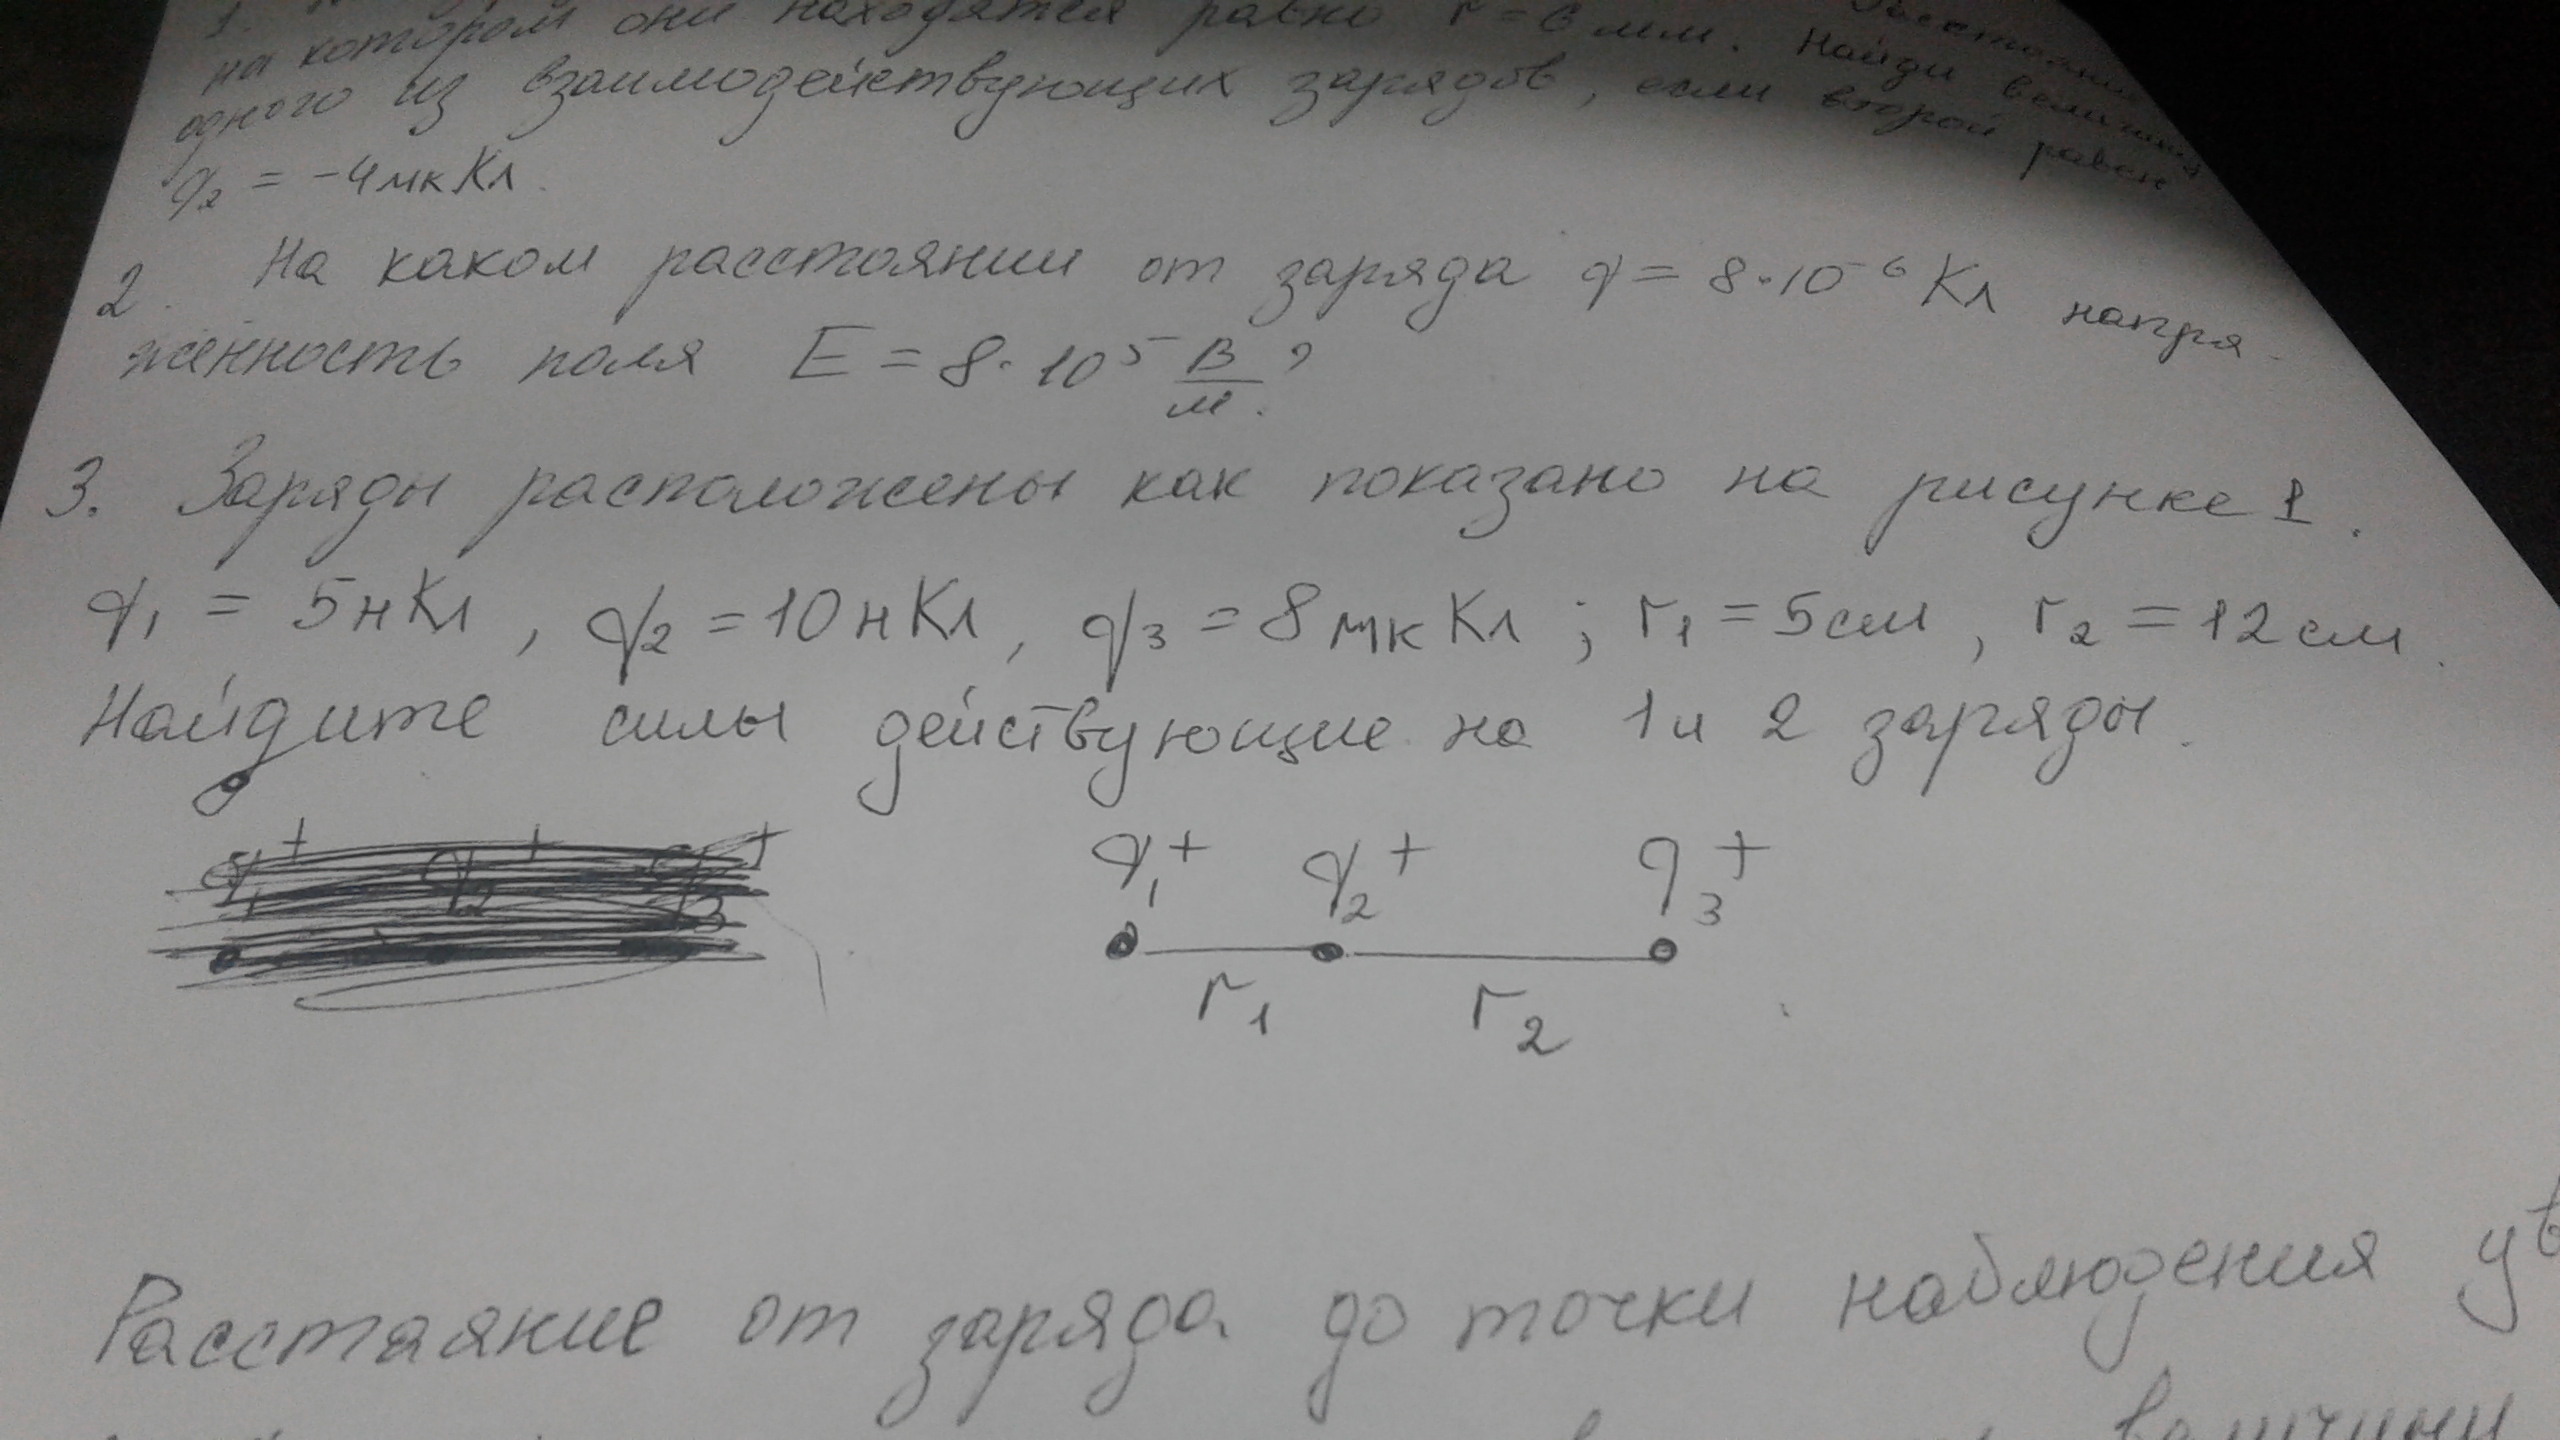 1.
на котором они находятся равно r = 6 мм. Найди величину
одного из взаимодействующих зарядов, если второй равен
q2 = -4мкКл.
2. На каком расстоянии от заряда q = 8·10⁻⁶ Кл напря-
женность поля E = 8·10⁵ В/м ?
3. Заряды расположены как показано на рисунке 1.
q1 = 5нКл, q2 = 10нКл, q3 = 8мкКл; r1 = 5см, r2 = 12см.
Найдите силы действующие на 1 и 2 заряды.
q1+ q2+ q3+
q1+ q2+ q3+
r1 r2
Расстаяние от заряда до точки наблюдения ув
величини